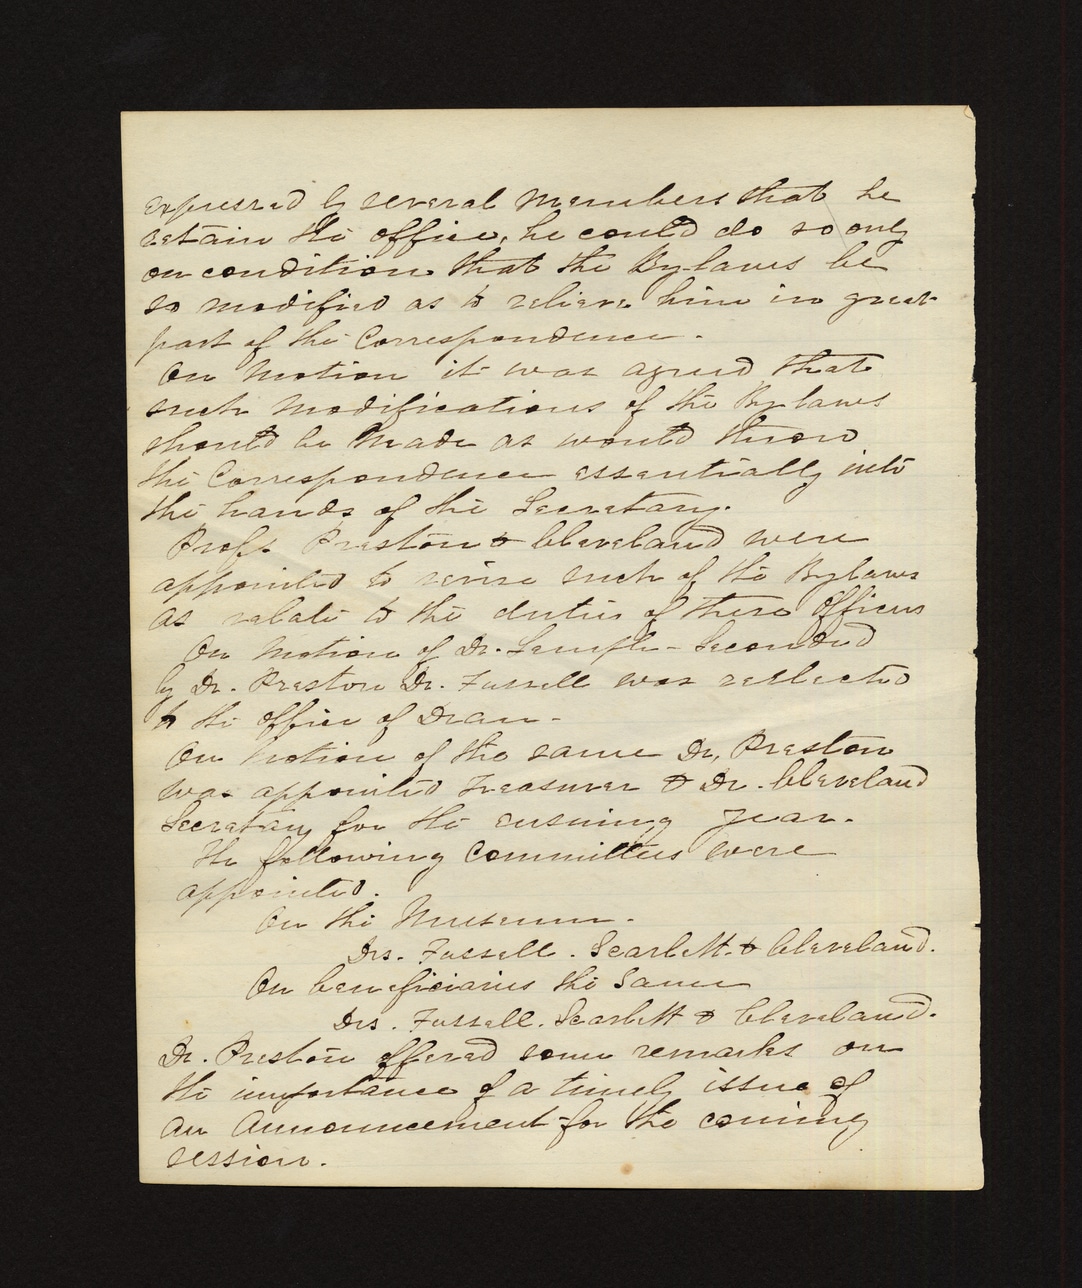 expressed by several Members that he
retain the office, he could do so only
on condition that the Bylaws be
so modified as to relieve him in great
part of the Correspondence.
On Motion it was agreed that
such Modifications of the Bylaws
should be Made as would throw
the Correspondence essentially into
the hands of the Secretary.
Profs Preston & Cleveland were
appointed to revise such of the Bylaws
as relate to the duties of these Officers
On Motion of Dr. Semple - Seconded
by Dr. Preston Dr. Fussell was reelected
to the office of Dean -
On Motion of the same Dr, Preston
was appointed Treasurer & Dr. Cleveland
Secretary for the ensuing year.
The following Committees were
appointed.
On the Museum.
Drs. Fussell. Scarlett. & Cleveland.
On beneficiaries the Same
Drs. Fussell. Scarlett & Cleveland.
Dr. Preston offered some remarks on
the importance of a timely issue of
an Announcement for the coming
session.